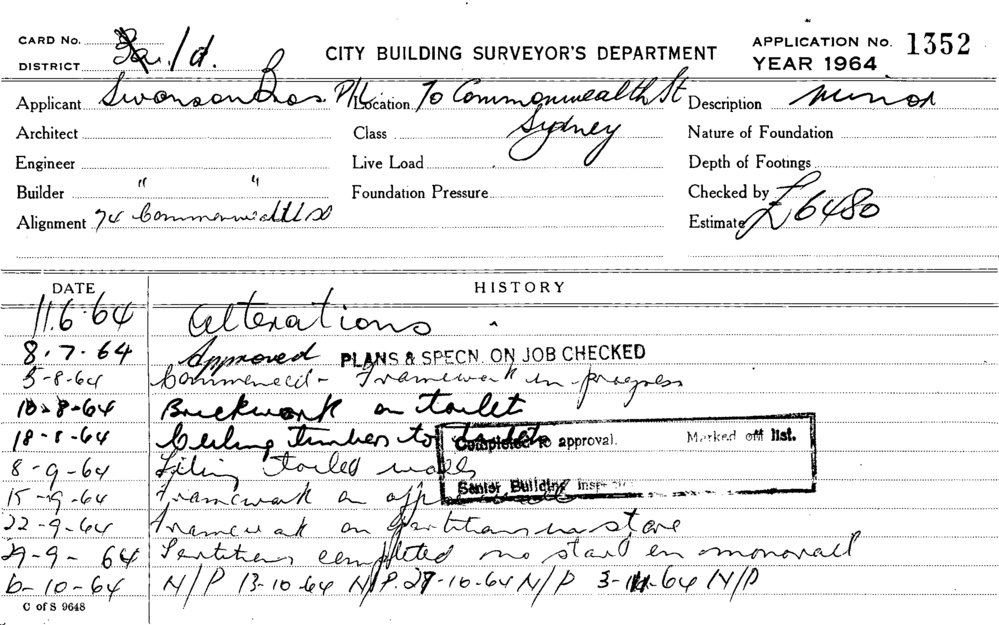 CARD No.
DISTRICT 1d.
CITY BUILDING SURVEYOR'S DEPARTMENT
APPLICATION No. 1352
YEAR 1964
Applicant Swanson Bros P/L
Location 70 Commonwealth St
Sydney
Description Minor
Architect
Class
Nature of Foundation
Engineer
Live Load
Depth of Footings
Builder " "
Foundation Pressure
Checked by
Alignment 74 Commonwealth St
Estimate £6480
DATE HISTORY
11.6.64 Alterations
8.7.64 Approved PLANS & SPECN. ON JOB CHECKED
5-8-64 Commenced - Framework in progress
10-8-64 Brickwork on toilet
18-8-64 Ceiling timbers to toilet
Completed to approval. Marked off list.
8-9-64 Tiling toilet walls
Senior Building Inspector
15-9-64 Framework on
22-9-64 Framework on partitions in store
29-9-64 Partitions completed no start on monorail
6-10-64 N/P 13-10-64 N/P. 27-10-64 N/P 3-11-64 N/P
C of S 9648